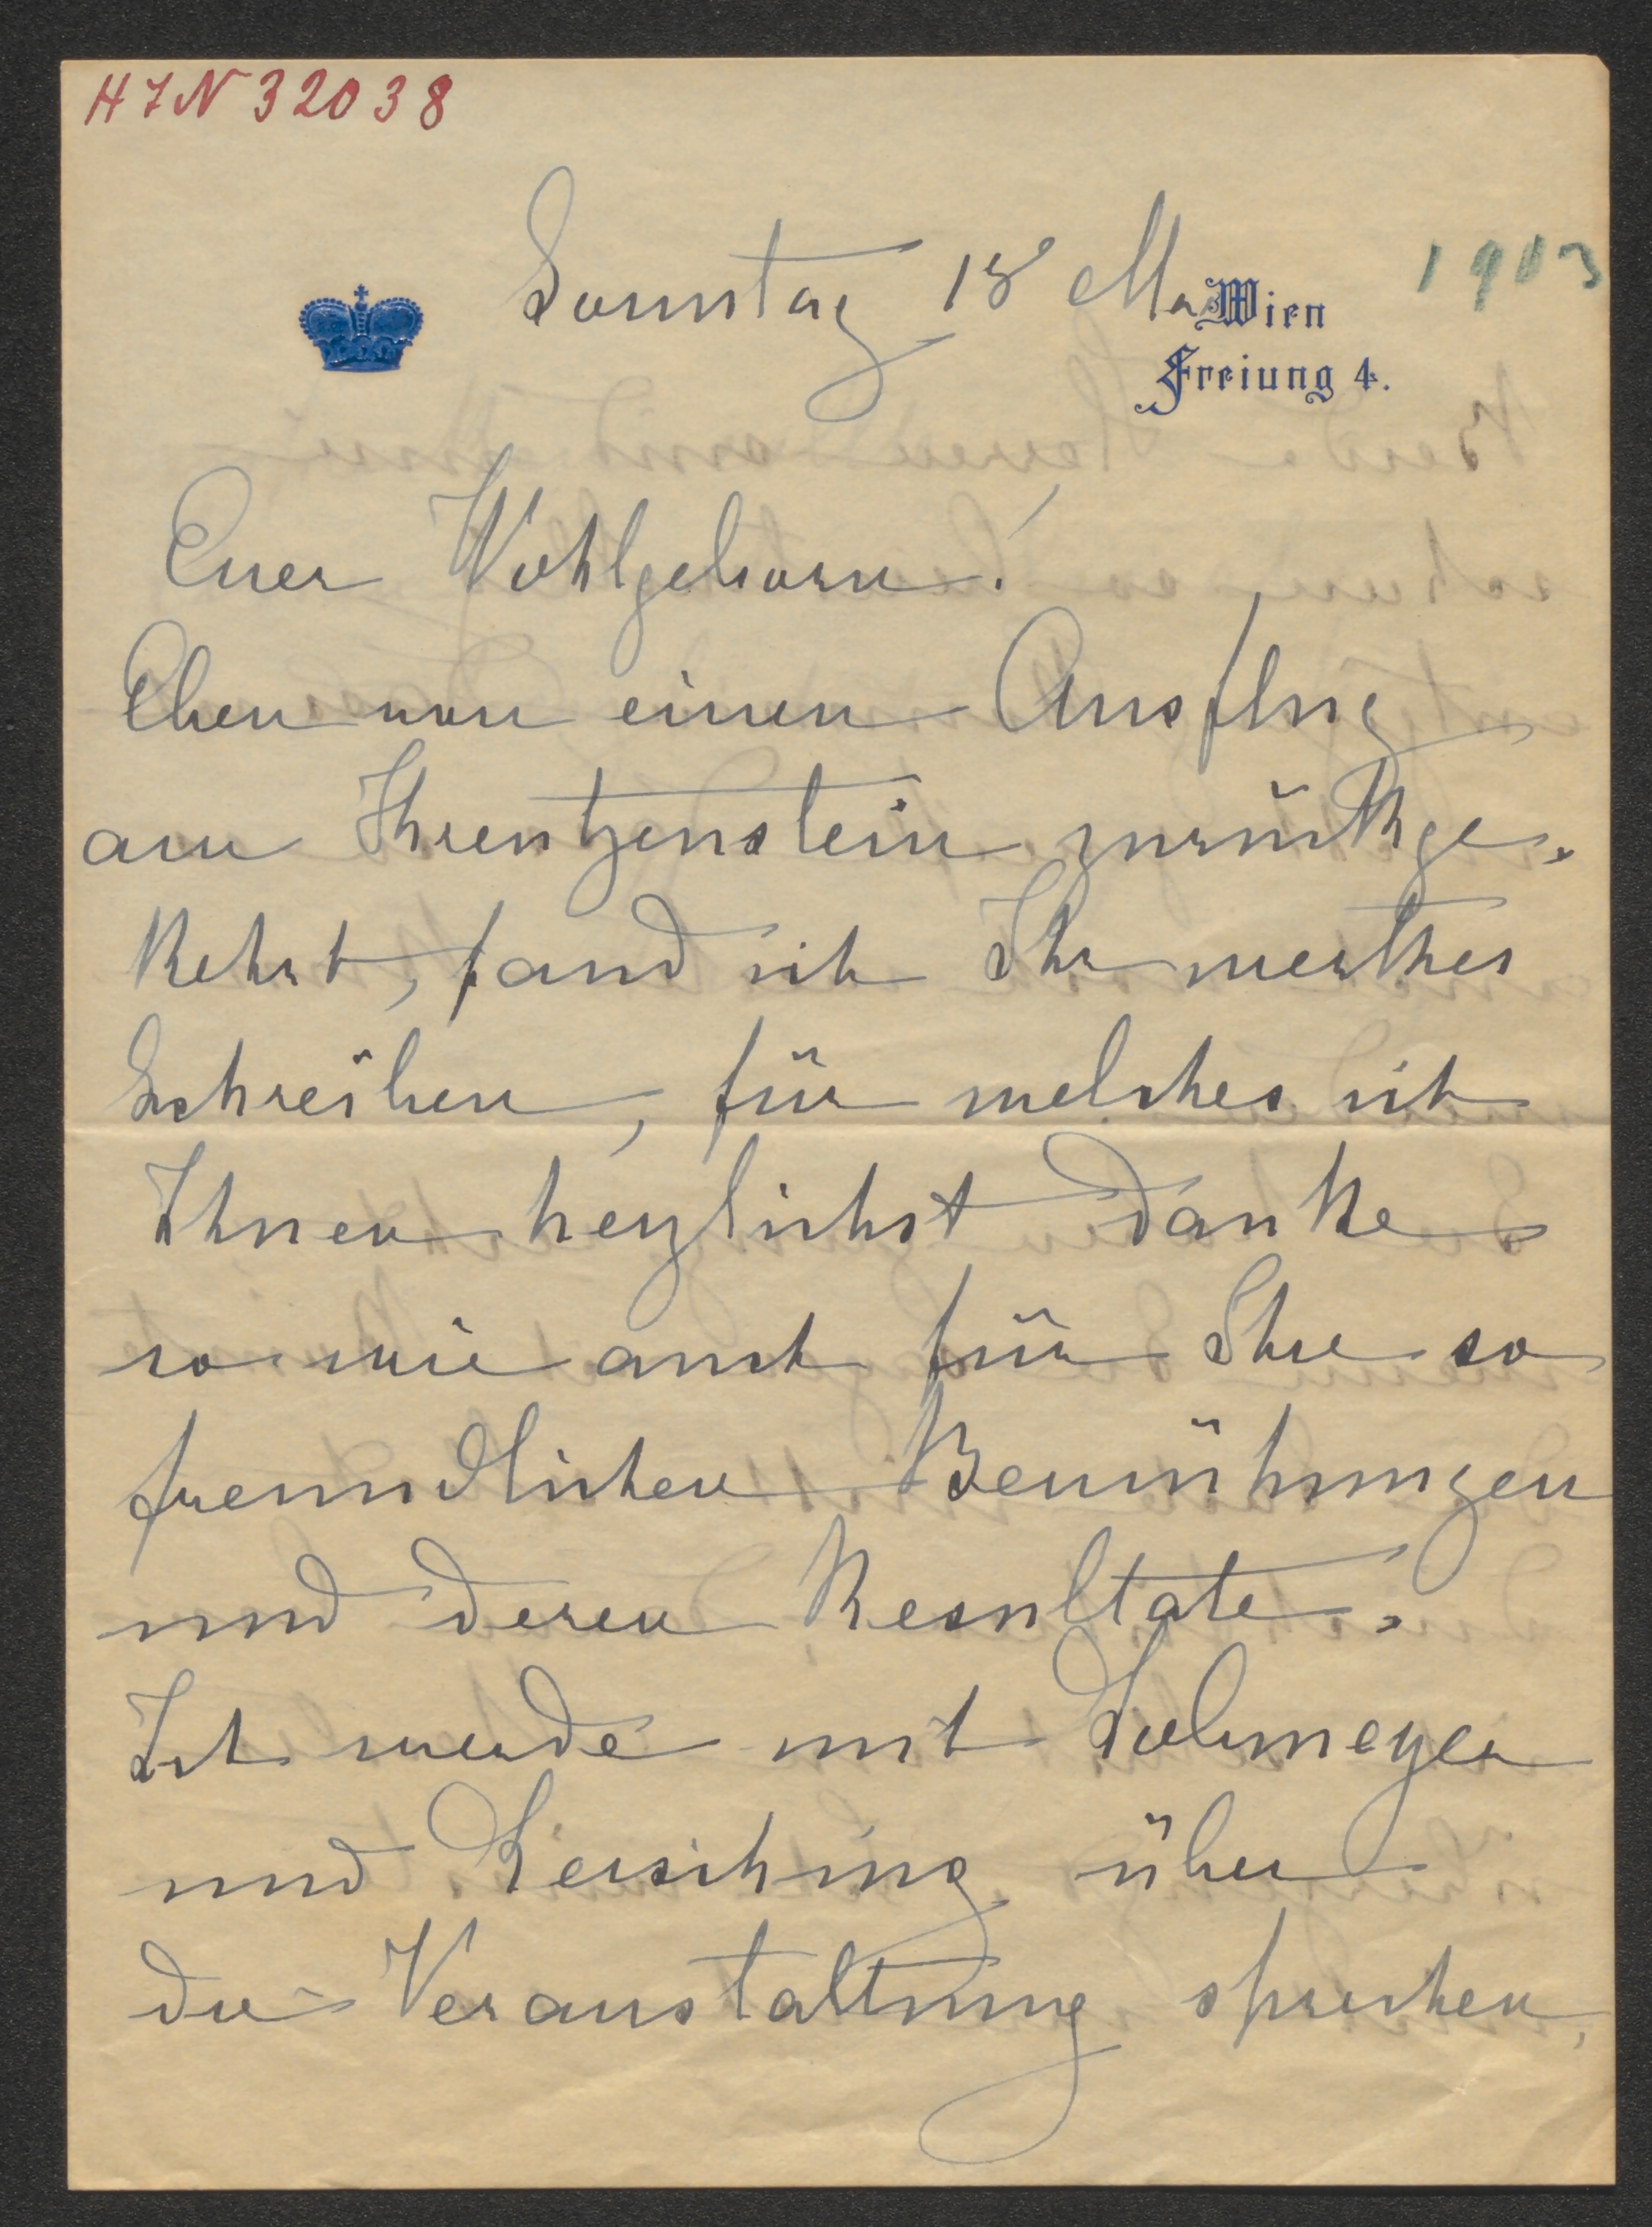 HIN 32038
1903
Sonntag 18 Mai
Wien
Freiung 4.
Euer Wohlgeborn!
Eben von einen Ausflug
am Khreutzenstein zurückge-
kehrt, fand ich Ihr werthes
Schreiben, für welches ich
Ihnen herzlichst danke
so wie auch für Ihre so
freundlichen Bemühungen
und deren Resultate.
Ich werde mit
und Leisching über
die Veranstaltung sprechen,